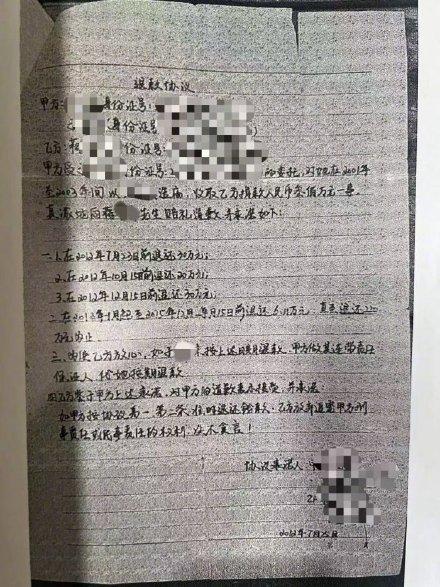 退款协议
甲方: 身份证号:
身份证号
乙方: 份证号:
甲方受 份证号: 的委托,对她在2001年
至2003年间以 造庙,收取乙方捐款人民币叁佰万元一事,
真诚地向 先生赔礼道歉并承诺如下:
一、1.在2012年7月23日前退还30万元;
2.在2012年10月15日前退还20万元;
3.在2012年12月15日前退还30万元;
二、在2013年1月起至2015年12月,每月15日前退还 万元,直至退还220
万元为止。
三、为使乙方放心,如 未按上述日期退款,甲方做其连带责任
保证人,给她按期退款。
四、乙方鉴于甲方上述承诺,对甲方的道歉表示接受,并承诺
如甲方按协议第一、第二条准时退还钱款,乙方放弃追索甲方刑
事责任或民事责任的权利,决不食言!
协议承诺人
2012年7月 日